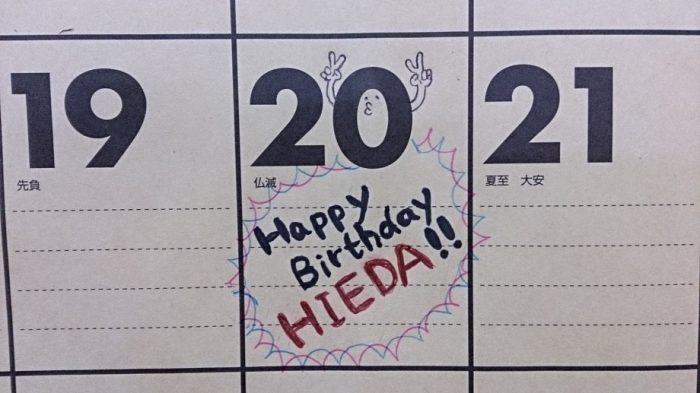 19
20
21
先負
仏滅
夏至 大安
Happy
Birthday
HIEDA!!